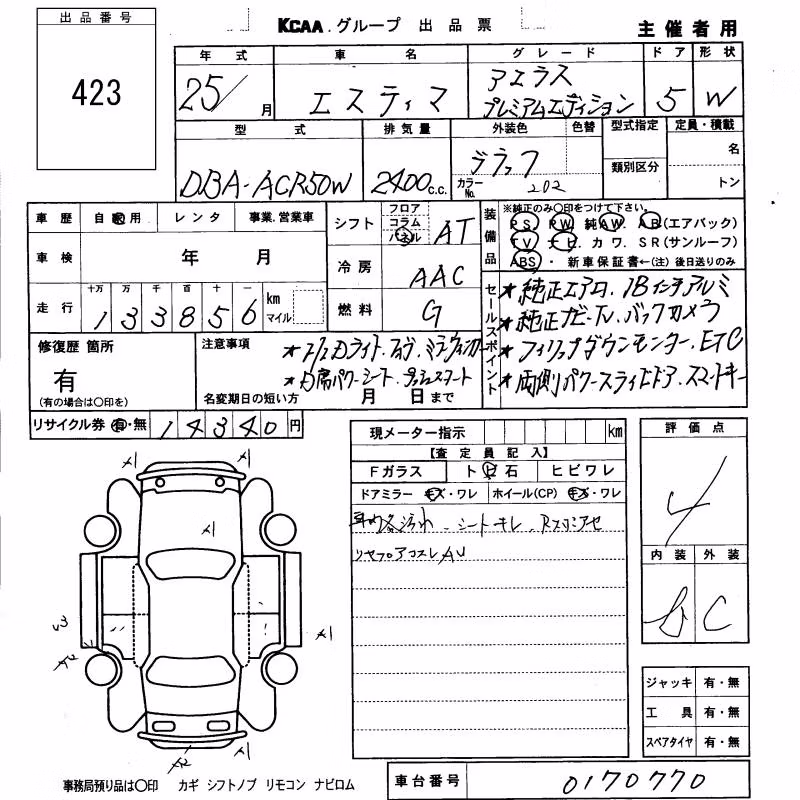 出品番号
423
KCAA グループ 出品票
主催者用
年式 車名 グレード ドア 形状
25/ 月 エスティマ アエラス プレミアムエディション 5 W
型式 排気量 外装色 色替 型式指定 定員・積載
DBA-ACR50W 2400 c.c. ブラック 類別区分 名
カラーNo. 202 トン
車歴 自家用 レンタ 事業.営業車
シフト フロア コラム パネル AT
装備品 ※純正のみ〇印をつけて下さい。
PS. PW. 純AW. AB(エアバック)
TV. ナビ. カワ. SR(サンルーフ)
ABS ・ 新車保証書←(注)後日送りのみ
車検 年 月
冷房 AAC
走行 十万 万 千 百 十 一 km マイル
1 3 3 8 5 6
燃料 G
セールスポイント
★純正エアロ.18インチアルミ
★純正ナビ・TV.バックカメラ
★フィリップダウンモニター.ETC
★両側パワースライドドア.スマートキー
修復歴 箇所
有
(有の場合は〇印を)
注意事項
名変期日の短い方 月 日まで
リサイクル券 有・無 14340円
現メーター指示 km
【査定員記入】
Fガラス トビ石 ヒビワレ
ドアミラー キズ・ワレ ホイール(CP) キズ・ワレ
シートキレ.
評価点
4
内装 外装
C
A1 A1
A1
A1
A2
A1
A2
ジャッキ 有・無
工具 有・無
スペアタイヤ 有・無
事務局預り品は〇印 カギ シフトノブ リモコン ナビロム
車台番号 0170770